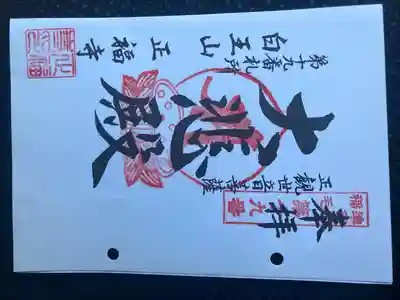 奉拝
正観世音菩薩
大悲殿
第十九番札所
白王山
正福寺